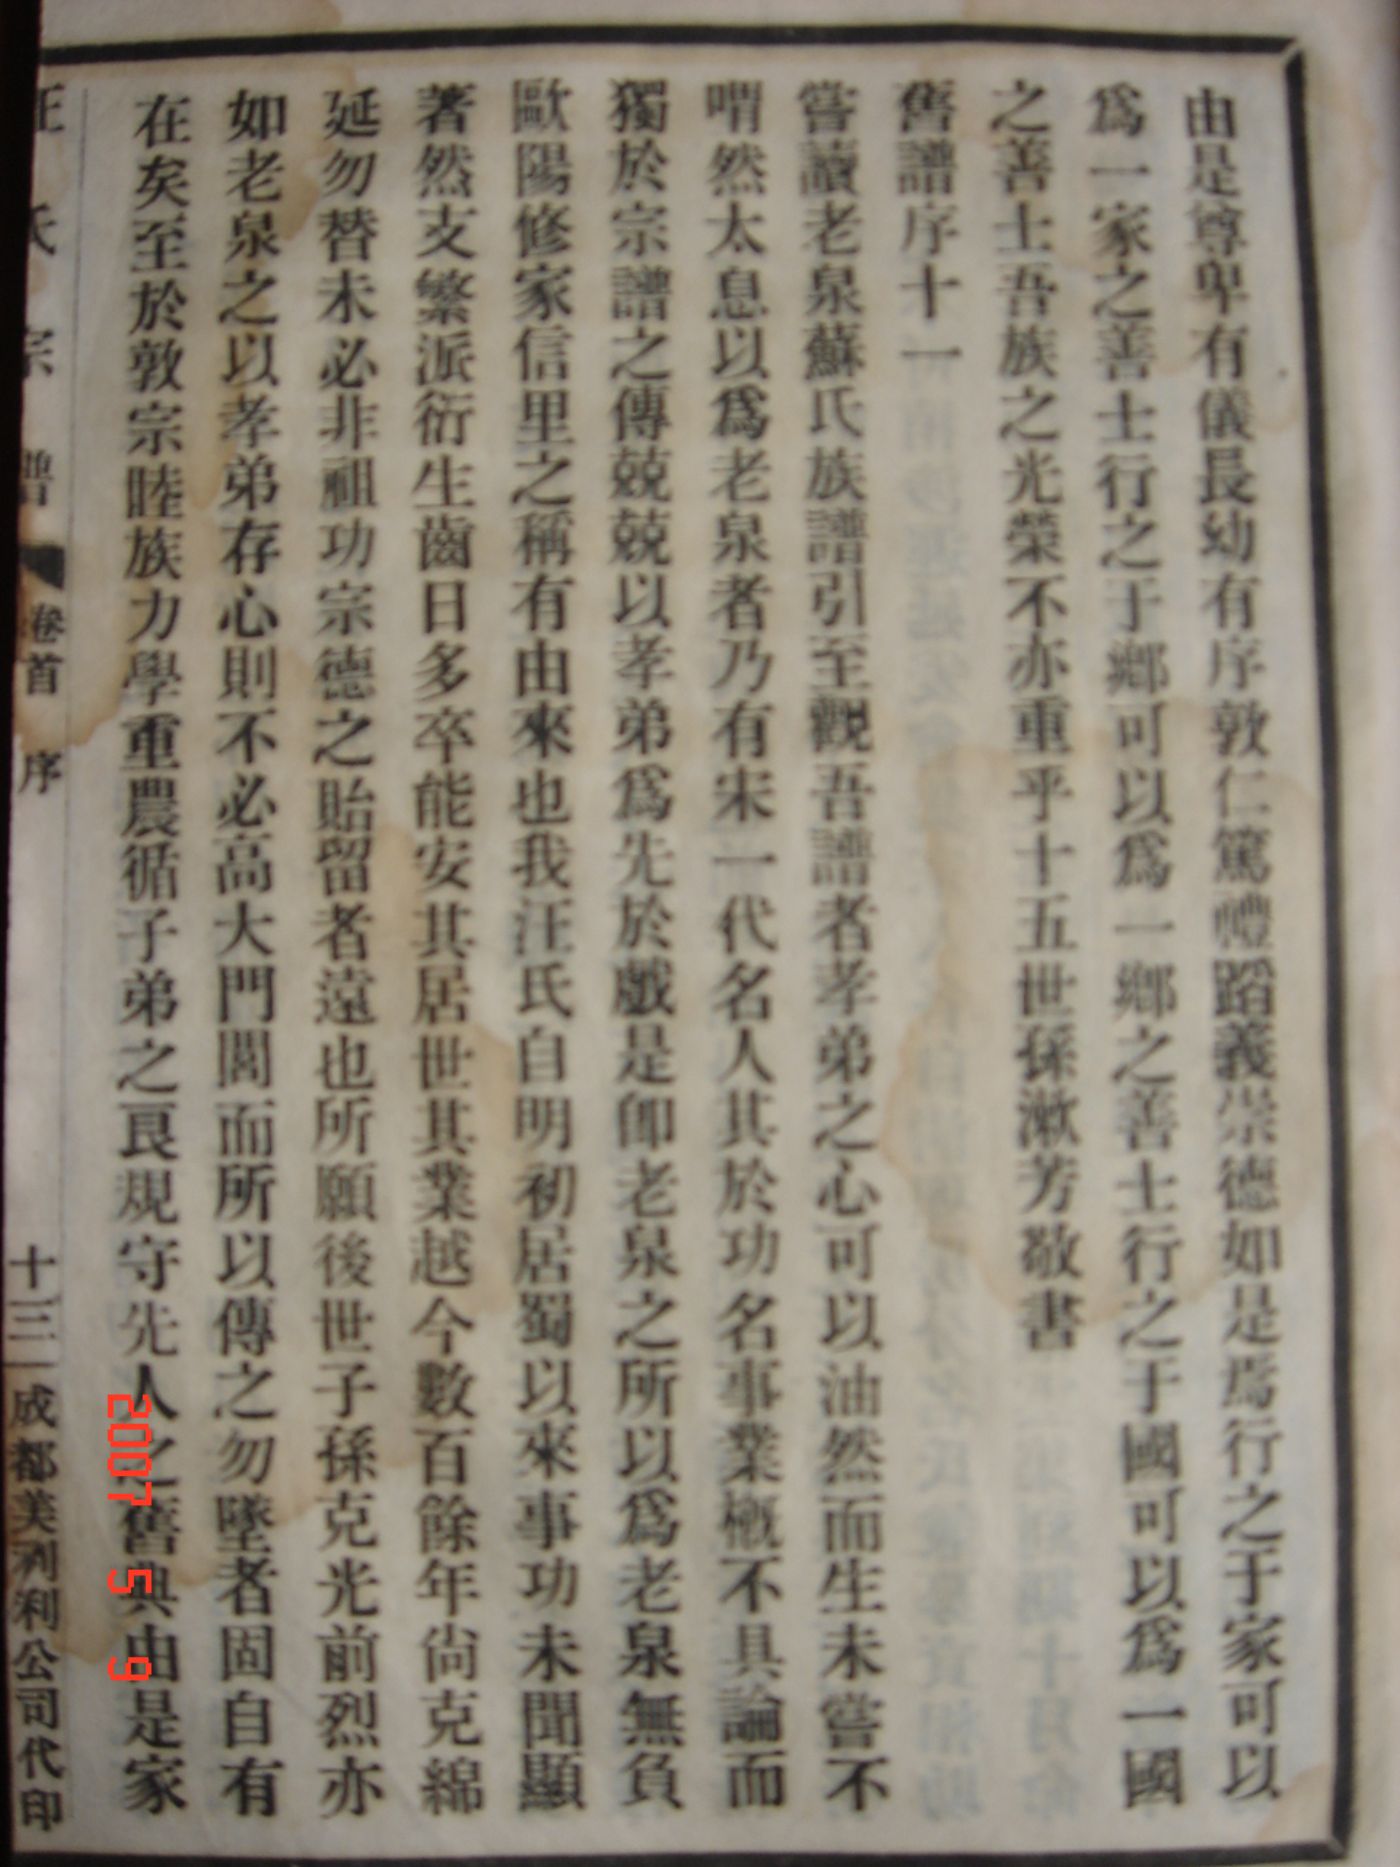 由是尊卑有儀長幼有序敦仁篤禮蹈義崇德如是焉行之于家可以
爲一家之善士行之于鄉可以爲一鄉之善士行之于國可以爲一國
之善士吾族之光榮不亦重乎十五世孫漱芳敬書
舊譜序十一
嘗讀老泉蘇氏族譜引至觀吾譜者孝弟之心可以油然而生未嘗不
喟然太息以爲老泉者乃有宋一代名人其於功名事業槪不具論而
獨於宗譜之傳兢兢以孝弟爲先於戲是卽老泉之所以爲老泉無負
歐陽修家信里之稱有由來也我汪氏自明初居蜀以來事功未聞顯
著然支繁派衍生齒日多卒能安其居世其業越今數百餘年尙克綿
延勿替未必非祖功宗德之貽留者遠也所願後世子孫克光前烈亦
如老泉之以孝弟存心則不必高大門閭而所以傳之勿墜者固自有
在矣至於敦宗睦族力學重農循子弟之良規守先人之舊典由是家
汪氏宗譜 卷首 序 十三 成都美利利公司代印
2007 5 9